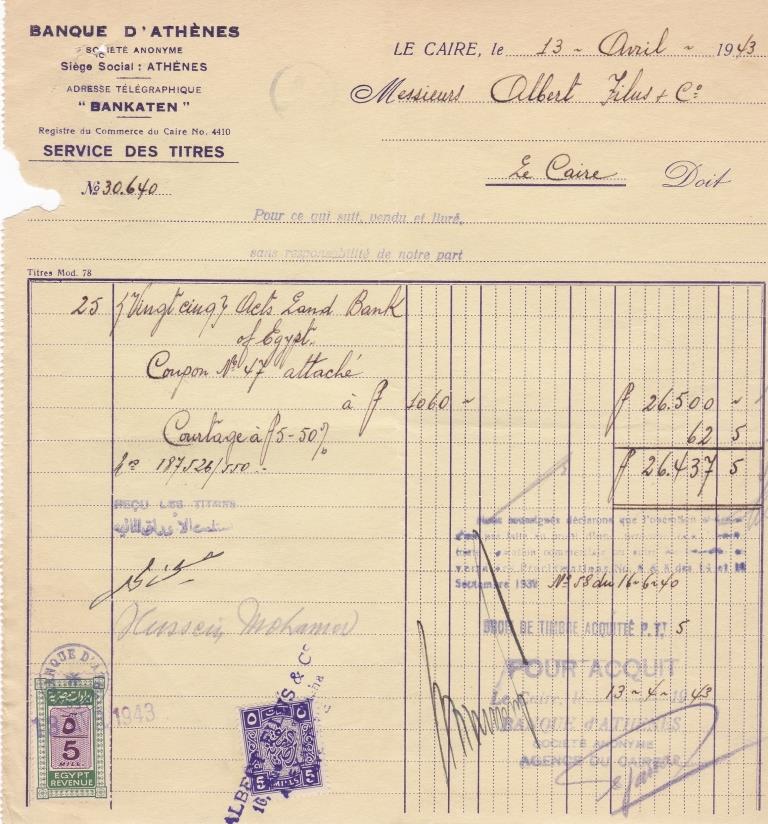 BANQUE D'ATHÈNES
SOCIÉTÉ ANONYME
Siège Social : ATHÈNES
ADRESSE TÉLÉGRAPHIQUE
"BANKATEN"
Registre du Commerce du Caire No. 4410
SERVICE DES TITRES
No 30.640
LE CAIRE, le 13 - Avril - 1943
Messieurs Albert Filus & Co
Le Caire Doit
Pour ce qui suit, vendu et livré,
sans responsabilité de notre part
Titres Mod. 78
25 {Vingt cinq} Acts Land Bank
of Egypt.
Coupon No 47 attaché
à 1060 - 26.500 -
Courtage à 5-50% 62 5
Nos 187526/550 - 26.437 5
REÇU LES TITRES
Hussein Mohamed
déclarons que l'opération
Septembre 1939 No 58 du 16-6-40
DROIT DE TIMBRE ACQUITTÉ P.T. 5
POUR ACQUIT
Le Caire, 13-4-1943
BANQUE d'ATHÈNES
SOCIÉTÉ ANONYME
AGENCE DU CAIRE
BANQUE D'A
1943
٥
5
MILL.
EGYPT
REVENUE
ALBERT & Co
٥ ٥
5 MILLS 5